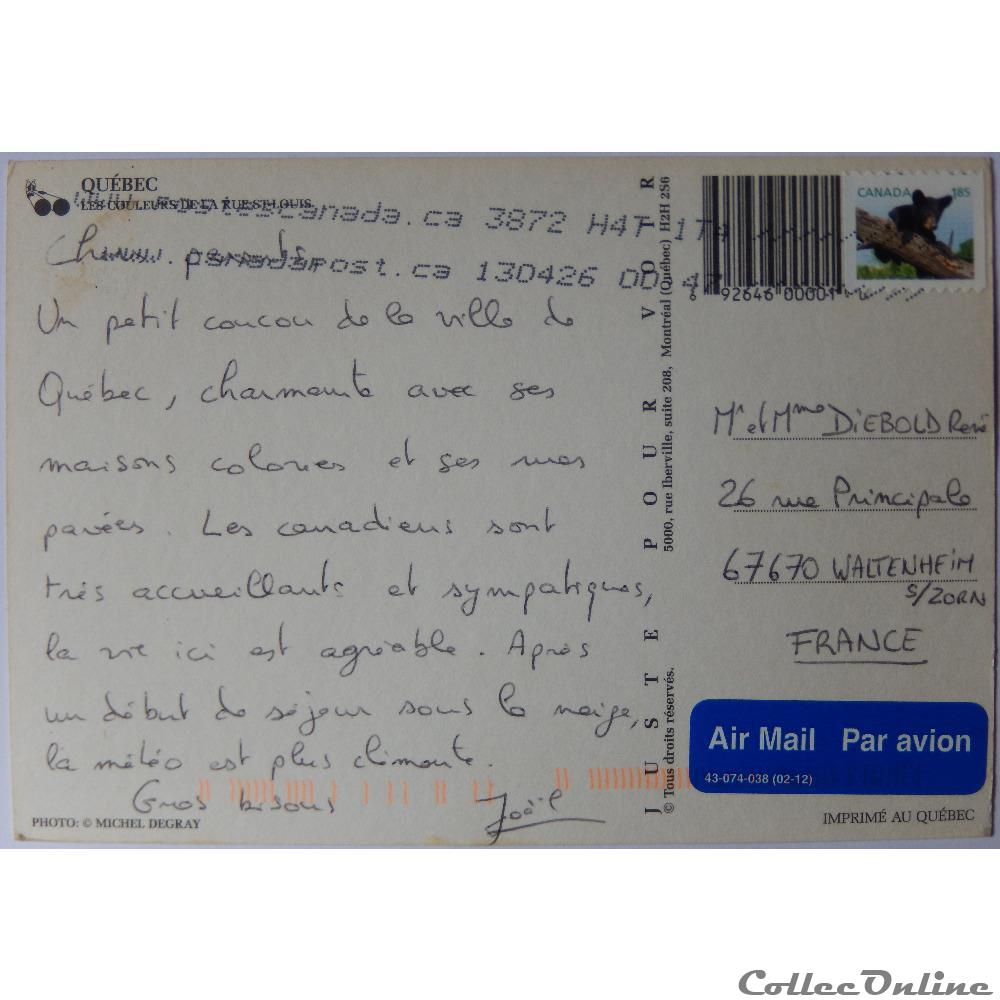 QUÉBEC
LES COULEURS DE LA RUE ST-LOUIS
postescanada.ca 3872 H4T 1T4
canadapost.ca 130426 00 47
Chers parents,
Un petit coucou de la ville de
Québec, charmante avec ses
maisons colorées et ses rues
pavées. Les canadiens sont
très accueillants et sympatiques,
la vie ici est agréable. Après
un début de séjour sous la neige,
la météo est plus clémente.
Gros bisous
Joël
PHOTO: © MICHEL DEGRAY
JUSTE POUR VOIR
© Tous droits réservés.
5000, rue Iberville, suite 208, Montréal (Québec) H2H 2S6
6 92646 00001
CANADA 185
Mr et Mme DIEBOLD René
26 rue Principale
67670 WALTENHEIM
s/ZORN
FRANCE
Air Mail Par avion
43-074-038 (02-12)
IMPRIMÉ AU QUÉBEC
CollecOnline